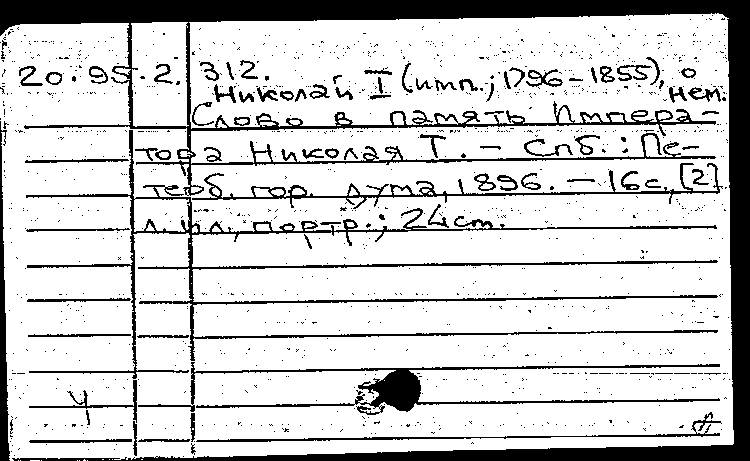 20.95.2.312.
Николай I (имп.; 1796-1855), о нем.
Слово в память Импера-
тора Николая I. - Спб. : Пе-
терб. гор. дума, 1896. - 16с., [2]
л. ил., портр.; 24см.
Ч